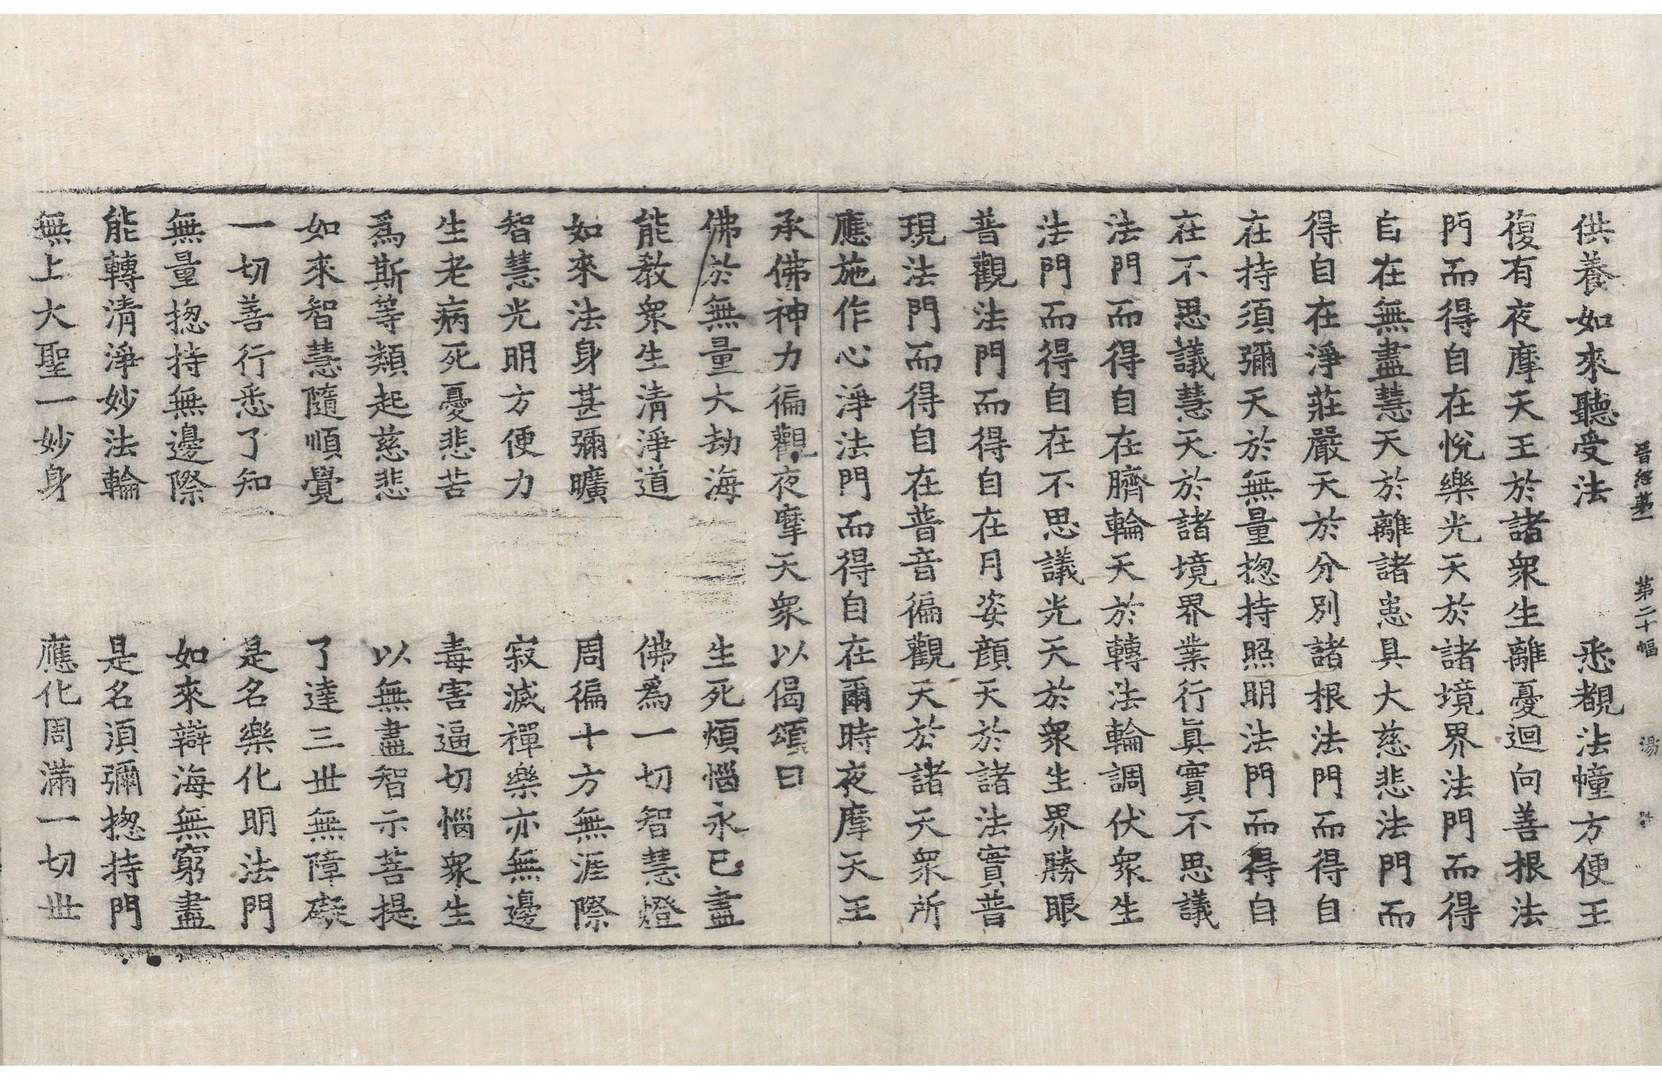 晉經第一　第二十幅　湯
供養如來聽受法　悉覩法幢方便王
復有夜摩天王於諸衆生離憂迴向善根法
門而得自在悅樂光天於諸境界法門而得
自在無盡慧天於離諸恚具大慈悲法門而
得自在淨莊嚴天於分別諸根法門而得自
在持須彌天於無量揔持照明法門而得自
在不思議慧天於諸境界業行眞實不思議
法門而得自在臍輪天於轉法輪調伏衆生
法門而得自在不思議光天於衆生界勝眼
普觀法門而得自在月姿顔天於諸法實普
現法門而得自在普音徧觀天於諸天衆所
應施作心淨法門而得自在爾時夜摩天王
承佛神力徧觀夜摩天衆以偈頌曰
佛於無量大劫海　生死煩惱永已盡
能敎衆生清淨道　佛爲一切智慧燈
如來法身甚彌曠　周徧十方無涯際
智慧光明方便力　寂滅禪樂亦無邊
生老病死憂悲苦　毒害逼切惱衆生
爲斯等類起慈悲　以無盡智示菩提
如來智慧隨順覺　了達三丗無障礙
一切善行悉了知　是名樂化明法門
無量揔持無邊際　如來辯海無窮盡
能轉清淨妙法輪　是名須彌揔持門
無上大聖一妙身　應化周滿一切丗